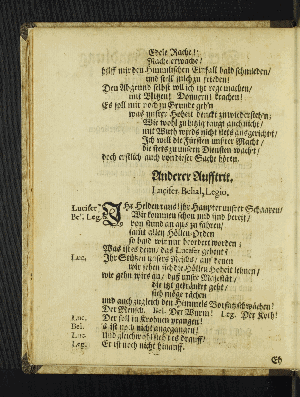 Edele Rache!
Rache erwache/
hilff mir den Himmlischen Einfall bald schmieden/
und stell mich zu frieden!
Den Abgrund selbst will ich itzt rege machen/
mit Blitzen! Donnern! krachen!
Es soll mir noch zu Grunde gehn
was unsrer Hoheit denckt zu wiederstehn;
Wie wohl zu hitzig taugt auch nicht/
mit Wuth wurds nicht stets ausgericht/
Ich will die Fürsten unsrer Macht/
die stets zu unsern Diensten wacht/
doch erstlich auch von dieser Sache hören.
Anderer Aufftrit.
Lucifer. Belial, Legio.
Lucifer Ihr Helden und ihr Häupter unsrer Schaaren/
Bel. Leg. Wir kommen schon und sind bereit/
von stund an aus zu fahren/
samt allen Höllen-Orden
so bald wir nur beordert worden;
Was ist es denn/ das Lucifer gebeut?
Luc. Ihr Stützen unsers Reichs/ aus denen
wir sehn sich die Höllen Hoheit lehnen/
wie gehn wirs an/ daß unsre Majestät/
die itzt gekräncket geht/
sich möge rächen
und auch zugleich den Himmels Vorsatz schwächen?
Der Mensch. Bel. Der Wurm! Leg. Der Koth!
Luc. Der soll in Krohnen prangen!
Bel. Es ist noch nicht angegangen!
Luc. Und gleichwohl sieht es drauff/
Leg. Er ist noch nicht hinauff.